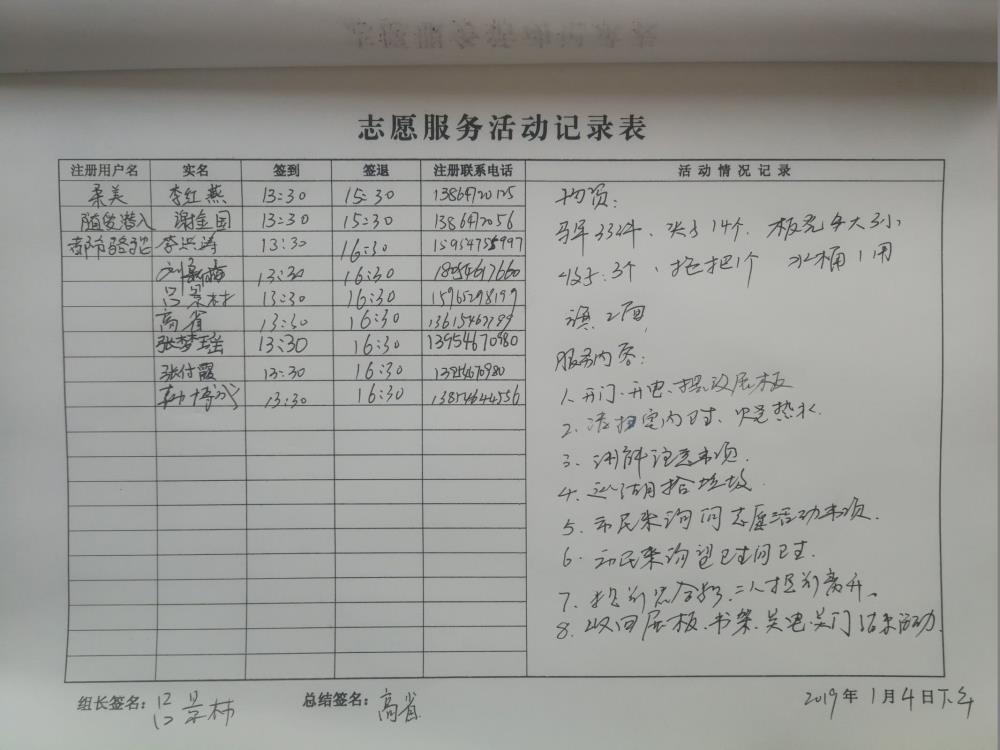 志愿服务活动记录表
注册用户名 实名 签到 签退 注册联系电话 活动情况记录
柔美 李红燕 13:30 15:30 13864720125
随缘潜入 谢金国 13:30 15:30 1386472056
李兴涛 13:30 16:30 15954755997
13:30 16:30
吕景村 13:30 16:30 15965298199
高省 13:30 16:30 13615462799
张梦瑶 13:30 16:30 13954670980
张付霞 13:30 16:30
13:30 16:30 13854644556
物资:
马甲33件、夹子14个、板凳4大3小
3个、拖把1个 水桶1用
旗2面
服务内容:
1、开门、开电、摆放展板
2、清扫室内卫生、烧热水
3、讲解注意事项.
4、巡湖拾垃圾
5、市民来询问志愿活动事项.
6、市民来询望卫生间卫生.
7、提前见合影、二人提前离开。
8、收回展板、书架、关电、关门结束活动.
组长签名: 吕景村 总结签名: 高省 2019年1月4日下午